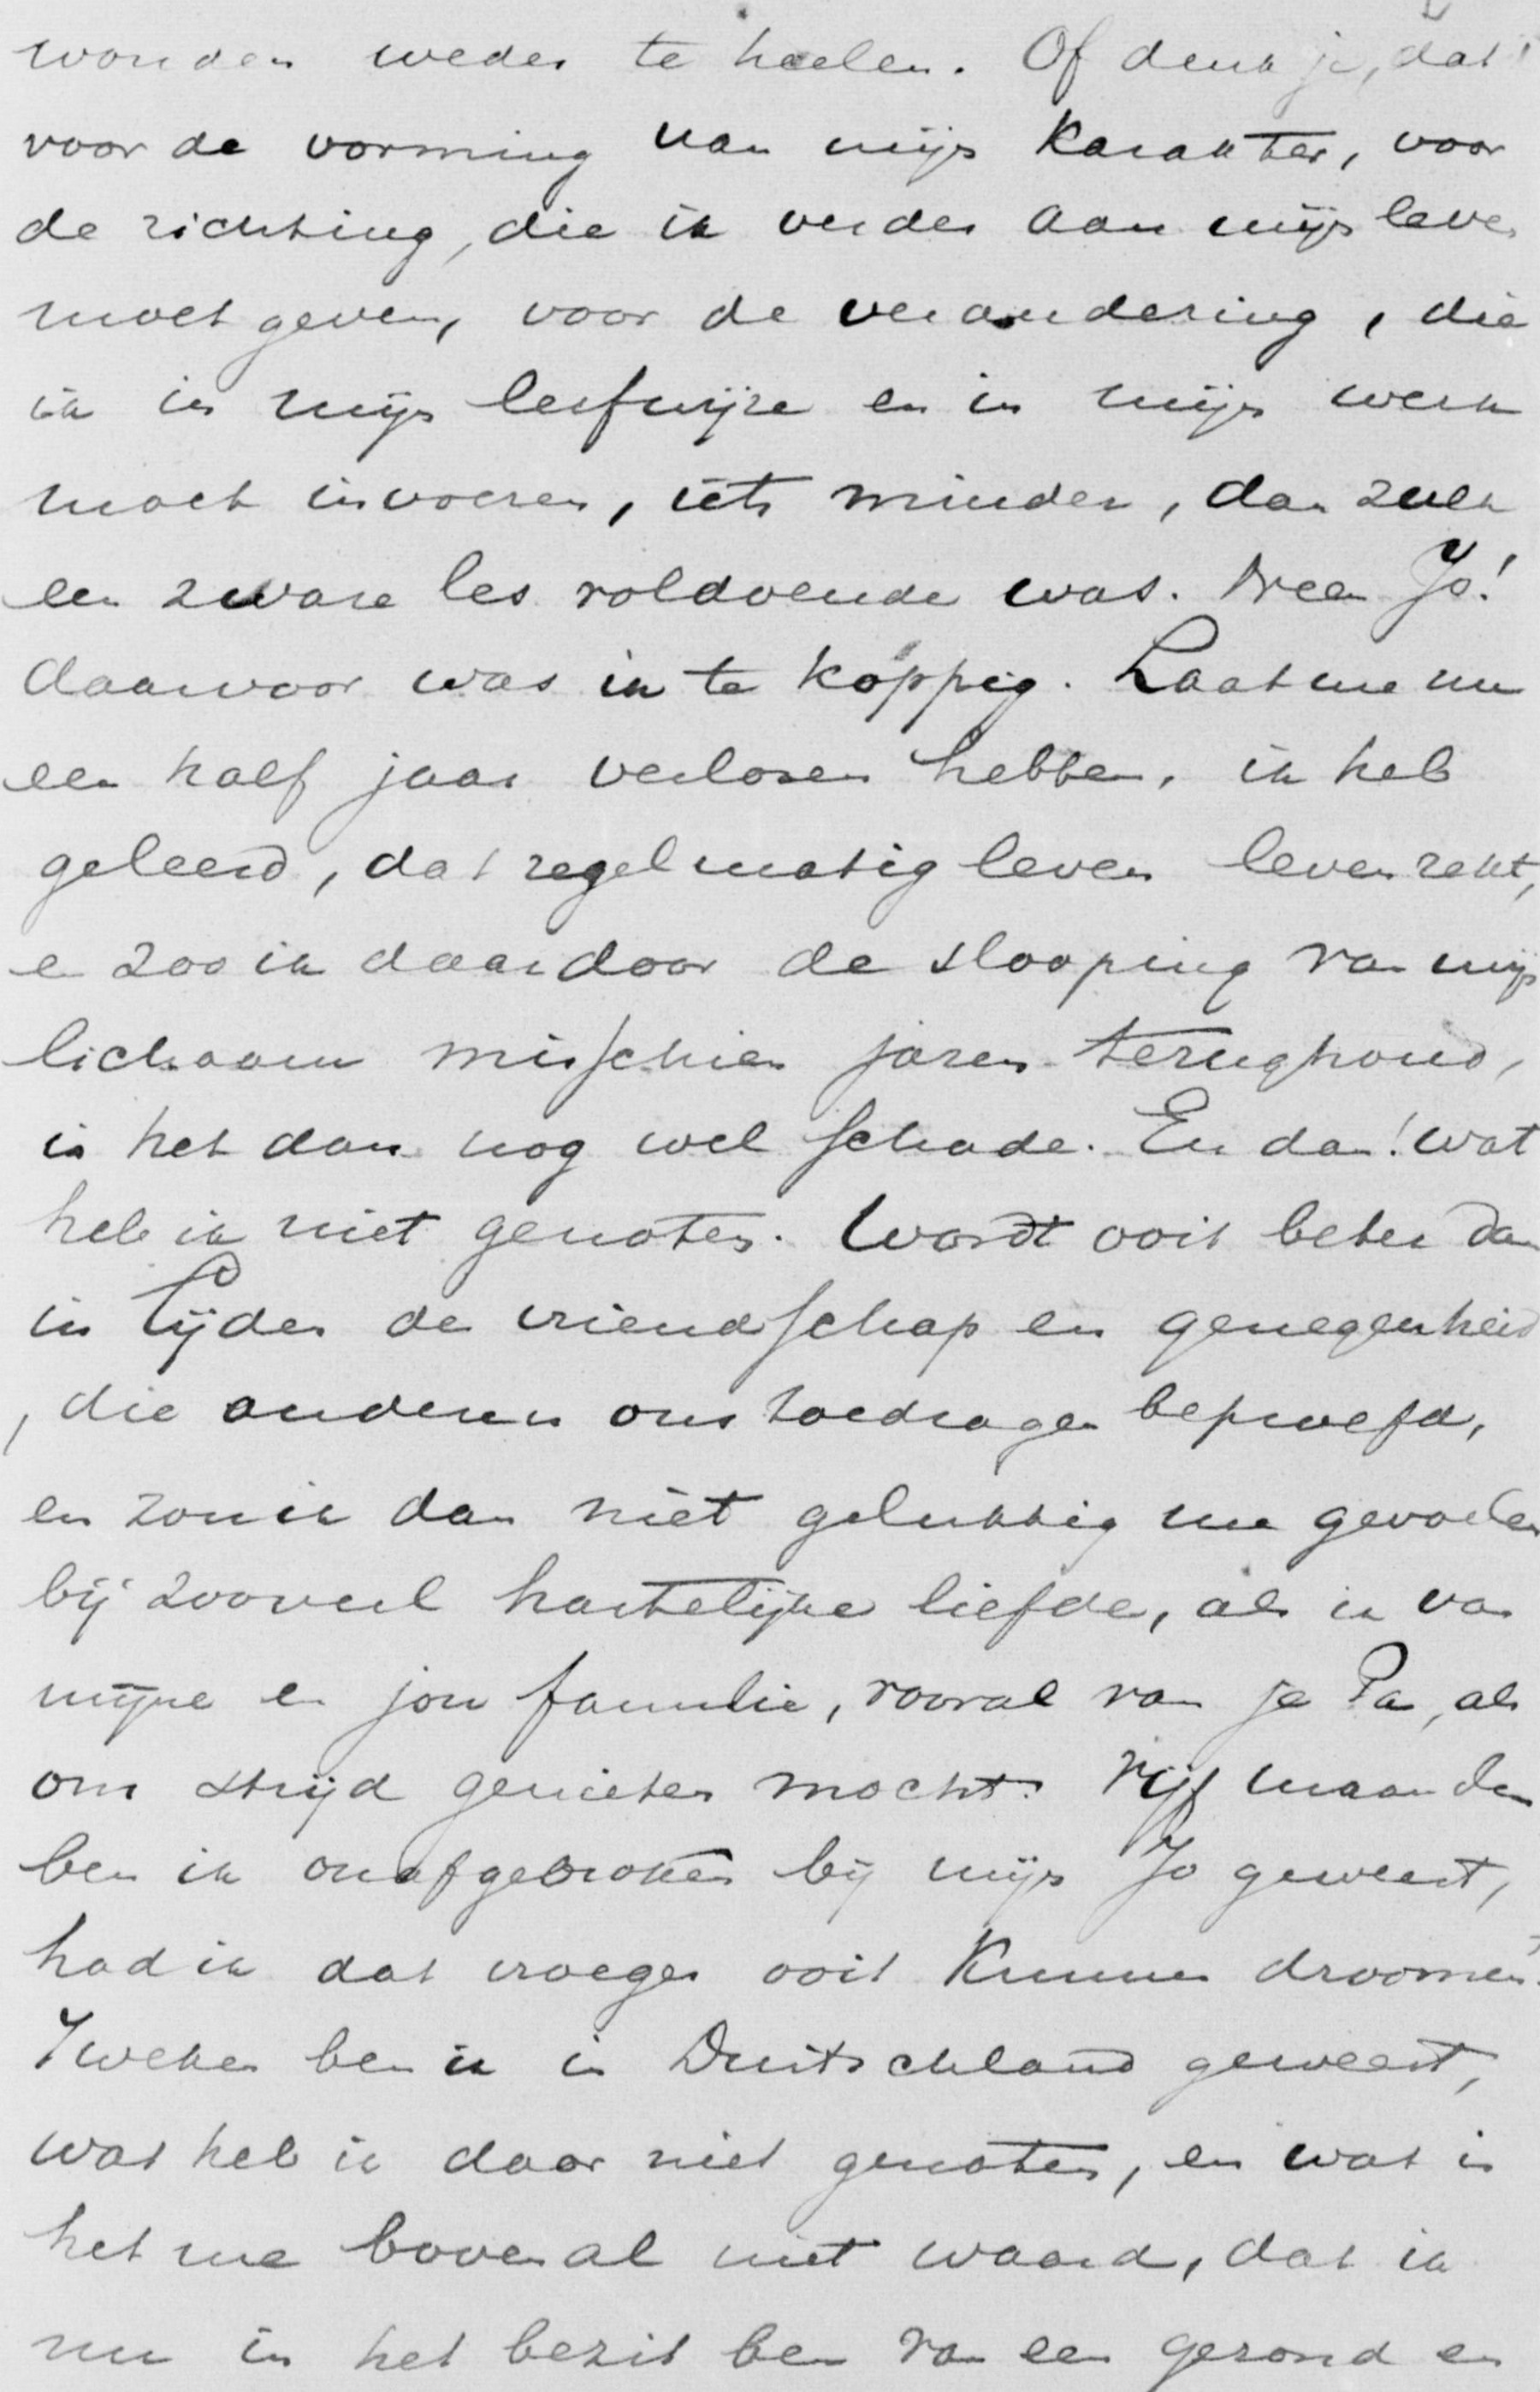 wonden weder te heelen. Of denk je, dat
voor de vorming van mijn Karakter, voor
de richting, die ik verder aan mijn leven
moet geven, voor de verandering, die
ik in mijn leefwijze en in mijn werk
moet invoeren, iets minder, dan zulk
een zware les voldoende was. Neen Jo!
daarvoor was ik te koppig. Laat me nu
een half jaar verloren hebben, ik heb
geleerd, dat regelmatig leven leven rekt,
en zoo ik daardoor de slooping van mijn
lichaam misschien jaren terughoud,
is het dan nog wel schade. En dan! wat
heb ik niet genoten. Wordt ooit beter dan
in Lijden de vriendschap en genegenheid
, die anderen ons toedragen beproefd,
en zou ik dan niet gelukkig me gevoelen
bij zooveel hartelijke liefde, als ik van
mijne en jou familie, vooral van je Pa, als
om strijd genieten mocht. Vijf maanden
ben ik onafgebroken bij mijn Jo geweest,
had ik dat vroeger ooit Kunnen droomen?
7 weken ben ik in Duitschland geweest,
wat heb ik daar niet genoten, en wat is
het me bovenal niet waard, dat ik
nu in het bezit ben van een gezond en